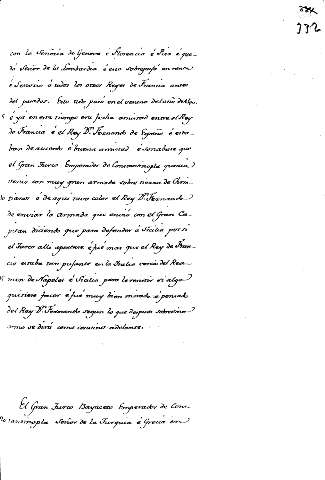 332
con la Señoria de Genova é Florencia é Pisa é que-
do Señor de la Lombardia é
é Servicio á todos los otros Reyes de Francia antes
del pasados. Esto todo paso en el verano del año de
é ya en este tiempo era fecha amistad entre el Rey
de Francia é el Rey Dn. Fernando de España é esta-
ban de acuerdo é buena amistad é sonabase que
el Gran Turco Emperador de Constantinopla queria
venir con muy gran armada sobre
é de aqui tuvo color el Rey Dn. Fernando
de enviar la armada que envio con el Gran Ca-
pitan diciendo que para defender á Sicilia por si
el Turco alli aportase é fué mas que el Rey de Fran-
cia estaba tan pujante en la Italia cerca del Rea-
me de Napoles é Sicilia para le resistir si algo
quisiese facer é fue muy bien mirado é pensado
del Rey Dn. Fernando segun lo que despues subcedio
como se dirá como conviene adelante.
El Gran Turco Bayaceto Emperador de Cons-
tantinopla Señor de la Turquia é Grecia em